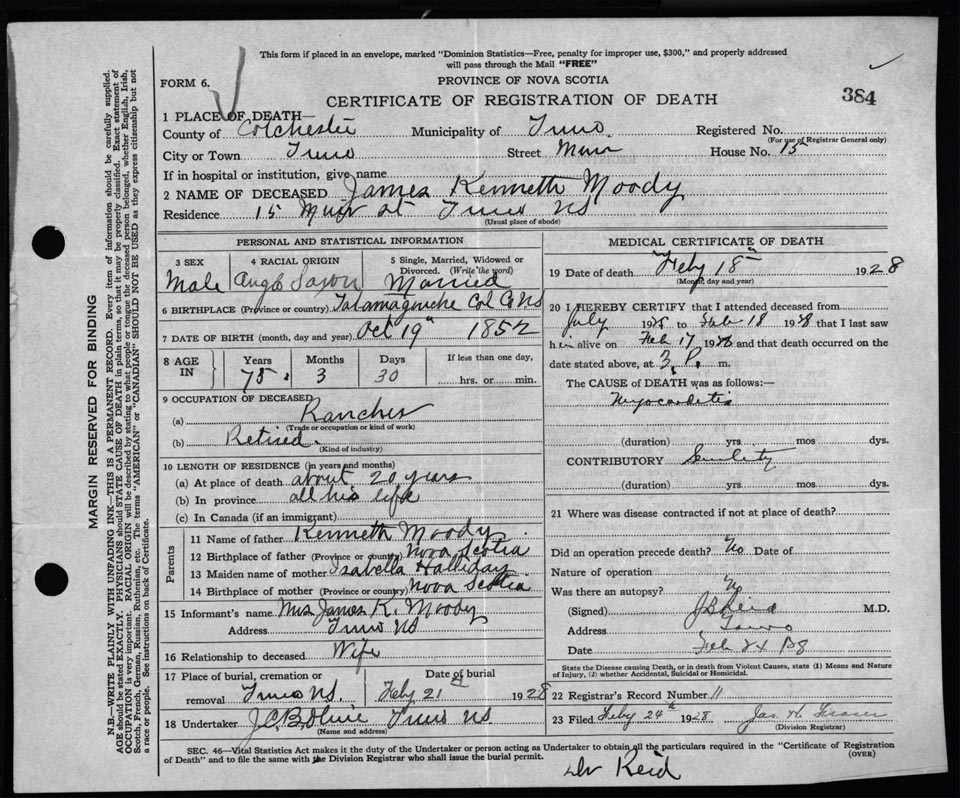 This form if placed in an envelope, marked "Dominion Statistics—Free, penalty for improper use, $300," and properly addressed
will pass through the Mail "FREE"
FORM 6.
PROVINCE OF NOVA SCOTIA
CERTIFICATE OF REGISTRATION OF DEATH
384
1 PLACE OF DEATH—
County of Colchester Municipality of Truro Registered No.
(For use of Registrar General only)
City or Town Truro Street Muir House No. 15
If in hospital or institution, give name
2 NAME OF DECEASED James Kenneth Moody
Residence 15 Muir St Truro NS
(Usual place of abode)
PERSONAL AND STATISTICAL INFORMATION
3 SEX 4 RACIAL ORIGIN 5 Single, Married, Widowed or
Divorced. (Write the word)
Male Anglo Saxon Married
6 BIRTHPLACE (Province or country) Tatamagouche Col Co NS
7 DATE OF BIRTH (month, day and year) Oct 19th 1852
8 AGE IN Years Months Days If less than one day,
75 3 30 hrs. or min.
9 OCCUPATION OF DECEASED
(a) Rancher
(Trade or occupation or kind of work)
(b) Retired
(Kind of industry)
10 LENGTH OF RESIDENCE (in years and months)
(a) At place of death about 20 years
(b) In province all his life
(c) In Canada (if an immigrant)
Parents
11 Name of father Kenneth Moody
12 Birthplace of father (Province or country) Nova Scotia
13 Maiden name of mother Isabella Halliday
14 Birthplace of mother (Province or country) Nova Scotia
15 Informant's name Mrs James K. Moody
Address Truro NS
16 Relationship to deceased Wife
17 Place of burial, cremation or Date of burial
removal Truro NS. Feby 21 1928
18 Undertaker J.C.B. Olive Truro NS
(Name and address)
MEDICAL CERTIFICATE OF DEATH
19 Date of death Feby 18th 1928
(Month, day and year)
20 I HEREBY CERTIFY that I attended deceased from
July 1925 to Feb 18 1928 that I last saw
him alive on Feb 17 1928 and that death occurred on the
date stated above, at 3 P. m.
The CAUSE of DEATH was as follows:—
Myocarditis
(duration) yrs mos dys.
CONTRIBUTORY Senility
(duration) yrs. mos dys.
21 Where was disease contracted if not at place of death?
Did an operation precede death? No Date of
Nature of operation
Was there an autopsy? No
(Signed) Reid M.D.
Address Truro
Date Feb 24 28
State the Disease causing Death, or in death from Violent Causes, state (1) Means and Nature
of Injury, (2) whether Accidental, Suicidal or Homicidal.
22 Registrar's Record Number 11
23 Filed Feby 24th 1928 Jas H Fraser
(Division Registrar)
SEC. 46—Vital Statistics Act makes it the duty of the Undertaker or person acting as Undertaker to obtain all the particulars required in the "Certificate of Registration
of Death" and to file the same with the Division Registrar who shall issue the burial permit.
(OVER)
Dr Reid
MARGIN RESERVED FOR BINDING
N.B.—WRITE PLAINLY WITH UNFADING INK—THIS IS A PERMANENT RECORD. Every item of information should be carefully supplied.
AGE should be stated EXACTLY. PHYSICIANS should STATE CAUSE OF DEATH in plain terms, so that it may be properly classified. Exact statement of
OCCUPATION is very important. RACIAL ORIGIN will be described by stating to what people or tongue the deceased person belonged, whether English, Irish,
Scotch, French, German, Russian, Ruthenian, etc. The terms "AMERICAN" or "CANADIAN" SHOULD NOT BE USED as they express citizenship but not
a race or people. See instructions on back of Certificate.